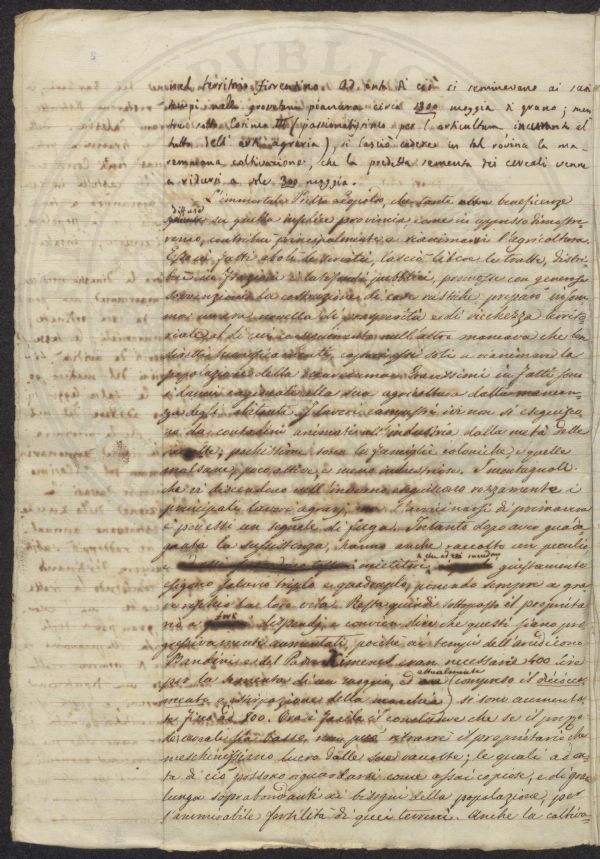 nel territorio fiorentino. Ad onta di ciò si seminavano ai suoi
tempi nella grossetana pianura circa 1300 moggia di grano; men
tre sotto Cosimo III (passionatissimo per l'orticultura incurante al
tutto dell'arte agraria), si lasciò cadere in tal rovina la ma-
remmana coltivazione, che la predetta sementa dei cereali venne
a ridursi a sole 300 moggia.
L'immortale Pietro Leopoldo, che tante beneficenze
diffuse
su quella infelice provincia, come in appresso dimostre-
remo, contribuì principalmente a rianimarvi l'agricoltura.
Esso in fatti abolì le servitù, lasciò libere le tratte, distri-
buì in frazioni i latifondi pubblici, promosse con generose
sovvenzioni la costruzione di case rustiche, preparò insom
ma un'era novella di prosperità e di ricchezza territo-
riale, al di cui conseguimento null'altro mancava che
diretta, capaci essi soli a rianimare la
popolazione della Maremma. Gravissimi in fatti sono
i danni cagionati alla sua agricoltura dalla mancan-
za degli abitanti. I lavori campestri ivi non si eseguisco
no da contadini animati all'industria dalla metà delle
raccolte; pochissime sono le famiglie coloniche, e quelle
malsane, poco attive, e meno industriose. I montagnoli
che vi discendono nell'inverno eseguiscono rozzamente i
principali lavori agrarj. L'avvicinarsi di primavera
è per essi un segnale di fuga. Intanto dopo aver guada
gnata la sussistenza, hanno anche raccolto un peculio
e mietitori giustamente
esigono salario triplo e quadruplo, ponendo sempre a gra
ve rischio la loro vita. Resta quindi sottoposto il proprieta
rio a forti dispendj, e convien dire che questi siano pro
gressivamente aumentati, poichè ai tempi dell'arcidiacono
Bandini e del Padre Ximenes eran necessarie 400 lire
per la sementa di un moggio, ed attualmente (compreso il dicioc
camento e estirpazione della macchia) si sono aumenta
te fino ad 800. Ora è facile il concludere che se il prezzo
dei cereali sia basso, non può ritrarre il proprietario che
meschinissimo lucro dalle sue raccolte; le quali ad on
ta di ciò possono riguardarsi come assai copiose, e di gran
lunga soprabondanti ai bisogni della popolazione, per
l'ammirabile fertilità di quei terreni. Anche la coltiva-